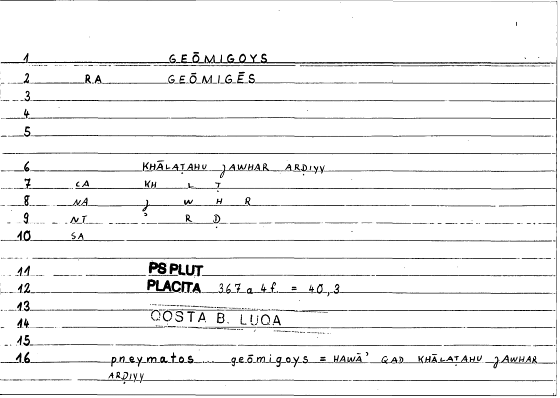 1 GEŌMIGOYS
2 R.A GEŌMIGĒS
3
4
5
6 KHĀLAṬAHU JAWHAR ARḌIYY
7 CA KH L Ṭ
8 NA J W H R
9 NT ʾ R Ḍ
10 SA
11 PS PLUT
12 PLACITA 367 a 4f. = 40,3
13
14 QOSTA B. LUQA
15
16 pneymatos ... geōmigoys = HAWĀʾ QAD KHĀLAṬAHU JAWHAR
ARḌIYY